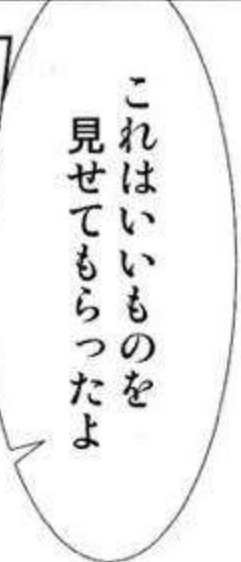 これはいいものを
見せてもらったよ